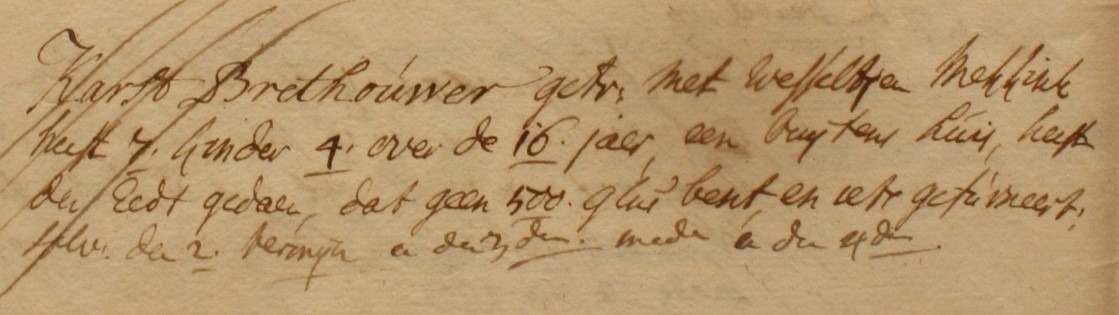 Karst Brethouwer getr: met Wesseltjen Mekkink
heeft 7. kinder 4. over de 16. jaer, een buytens huis, heeft
den Eedt gedaen, dat geen 500. gl: bent en
den 2. termijn a den 3den. mede a den 4den.